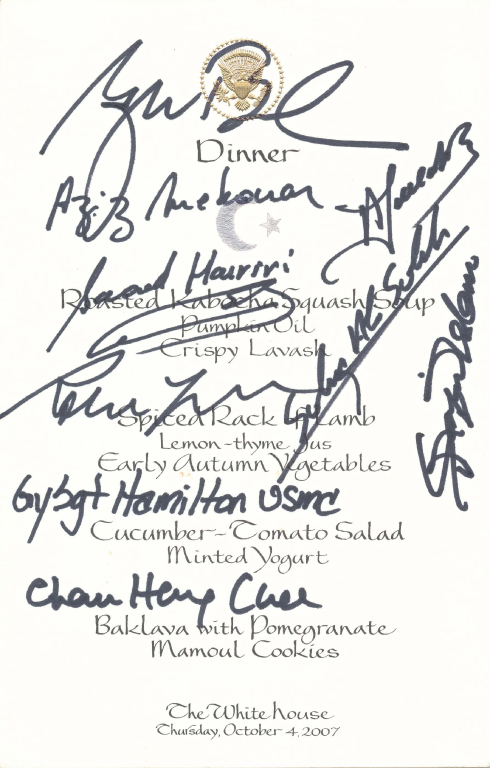 Dinner
Aziz Mekouar
Saad Hariri
Roasted Kabocha Squash Soup
Pumpkin Oil
Crispy Lavash
Spiced Rack of Lamb
Lemon-thyme Jus
Early Autumn Vegetables
GySgt Hamilton USMC
Cucumber-Tomato Salad
Minted Yogurt
Chan Heng Chee
Baklava with Pomegranate
Mamoul Cookies
The White House
Thursday, October 4, 2007